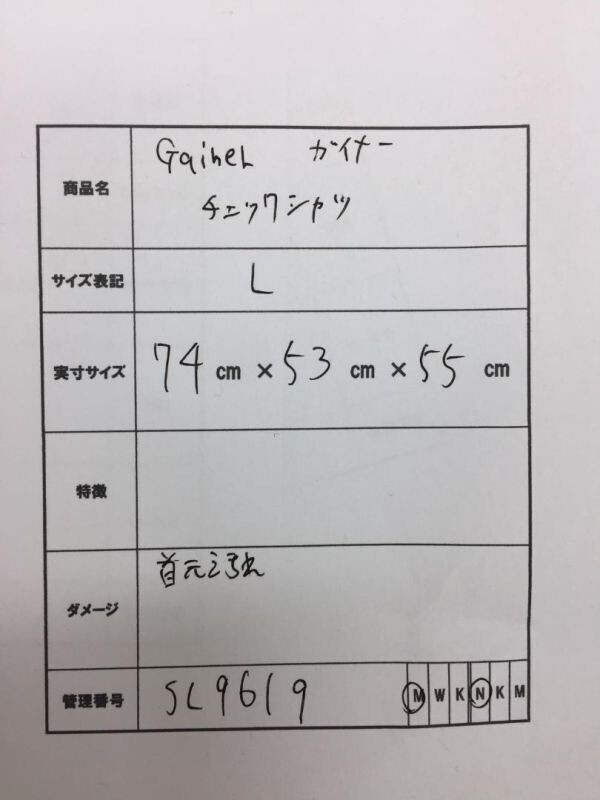 商品名 Gainer ガイナー
チェックシャツ
サイズ表記 L
実寸サイズ 74 cm × 53 cm × 55 cm
特徴
ダメージ 首元汚れ
管理番号 SL9619 M W K N K M